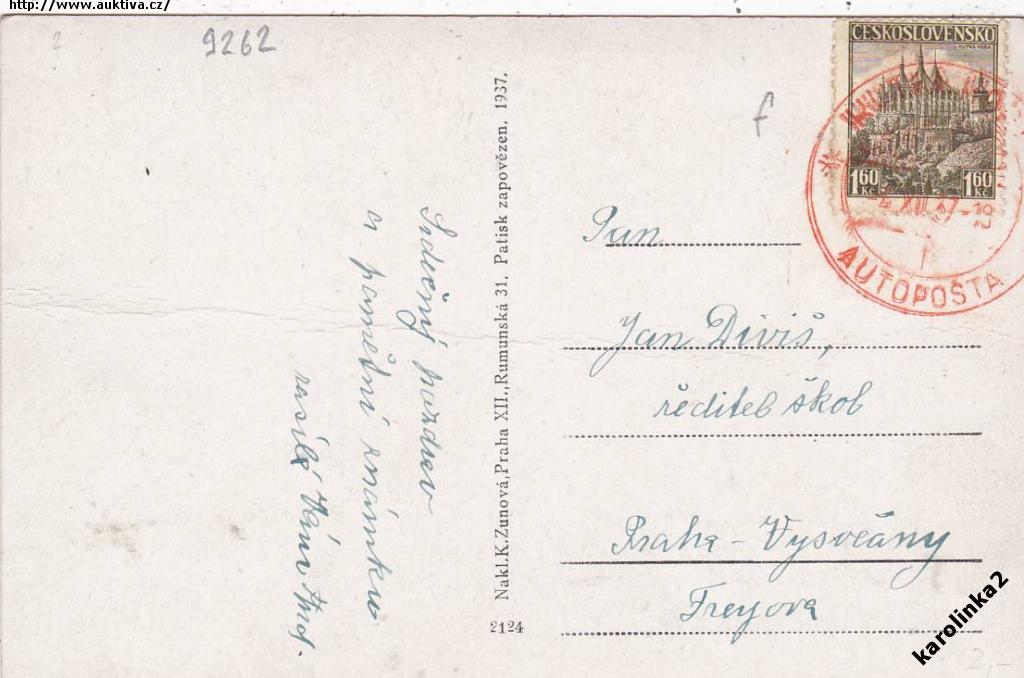 http://www.auktiva.cz/
9262
2
f
ČESKOSLOVENSKO
KUTNÁ HORA
1·60 Kč
1·60 Kč
AUTOPOŠTA
Srdečný pozdrav
a pamětní známku
zasílá Vám
Nakl. K. Zunová, Praha XII., Rumunská 31. Patisk zapovězen. 1937.
2124
Pan
Jan Diviš,
ředitel škol
Praha - Vysočany
Freyova
karolinka2
2,-